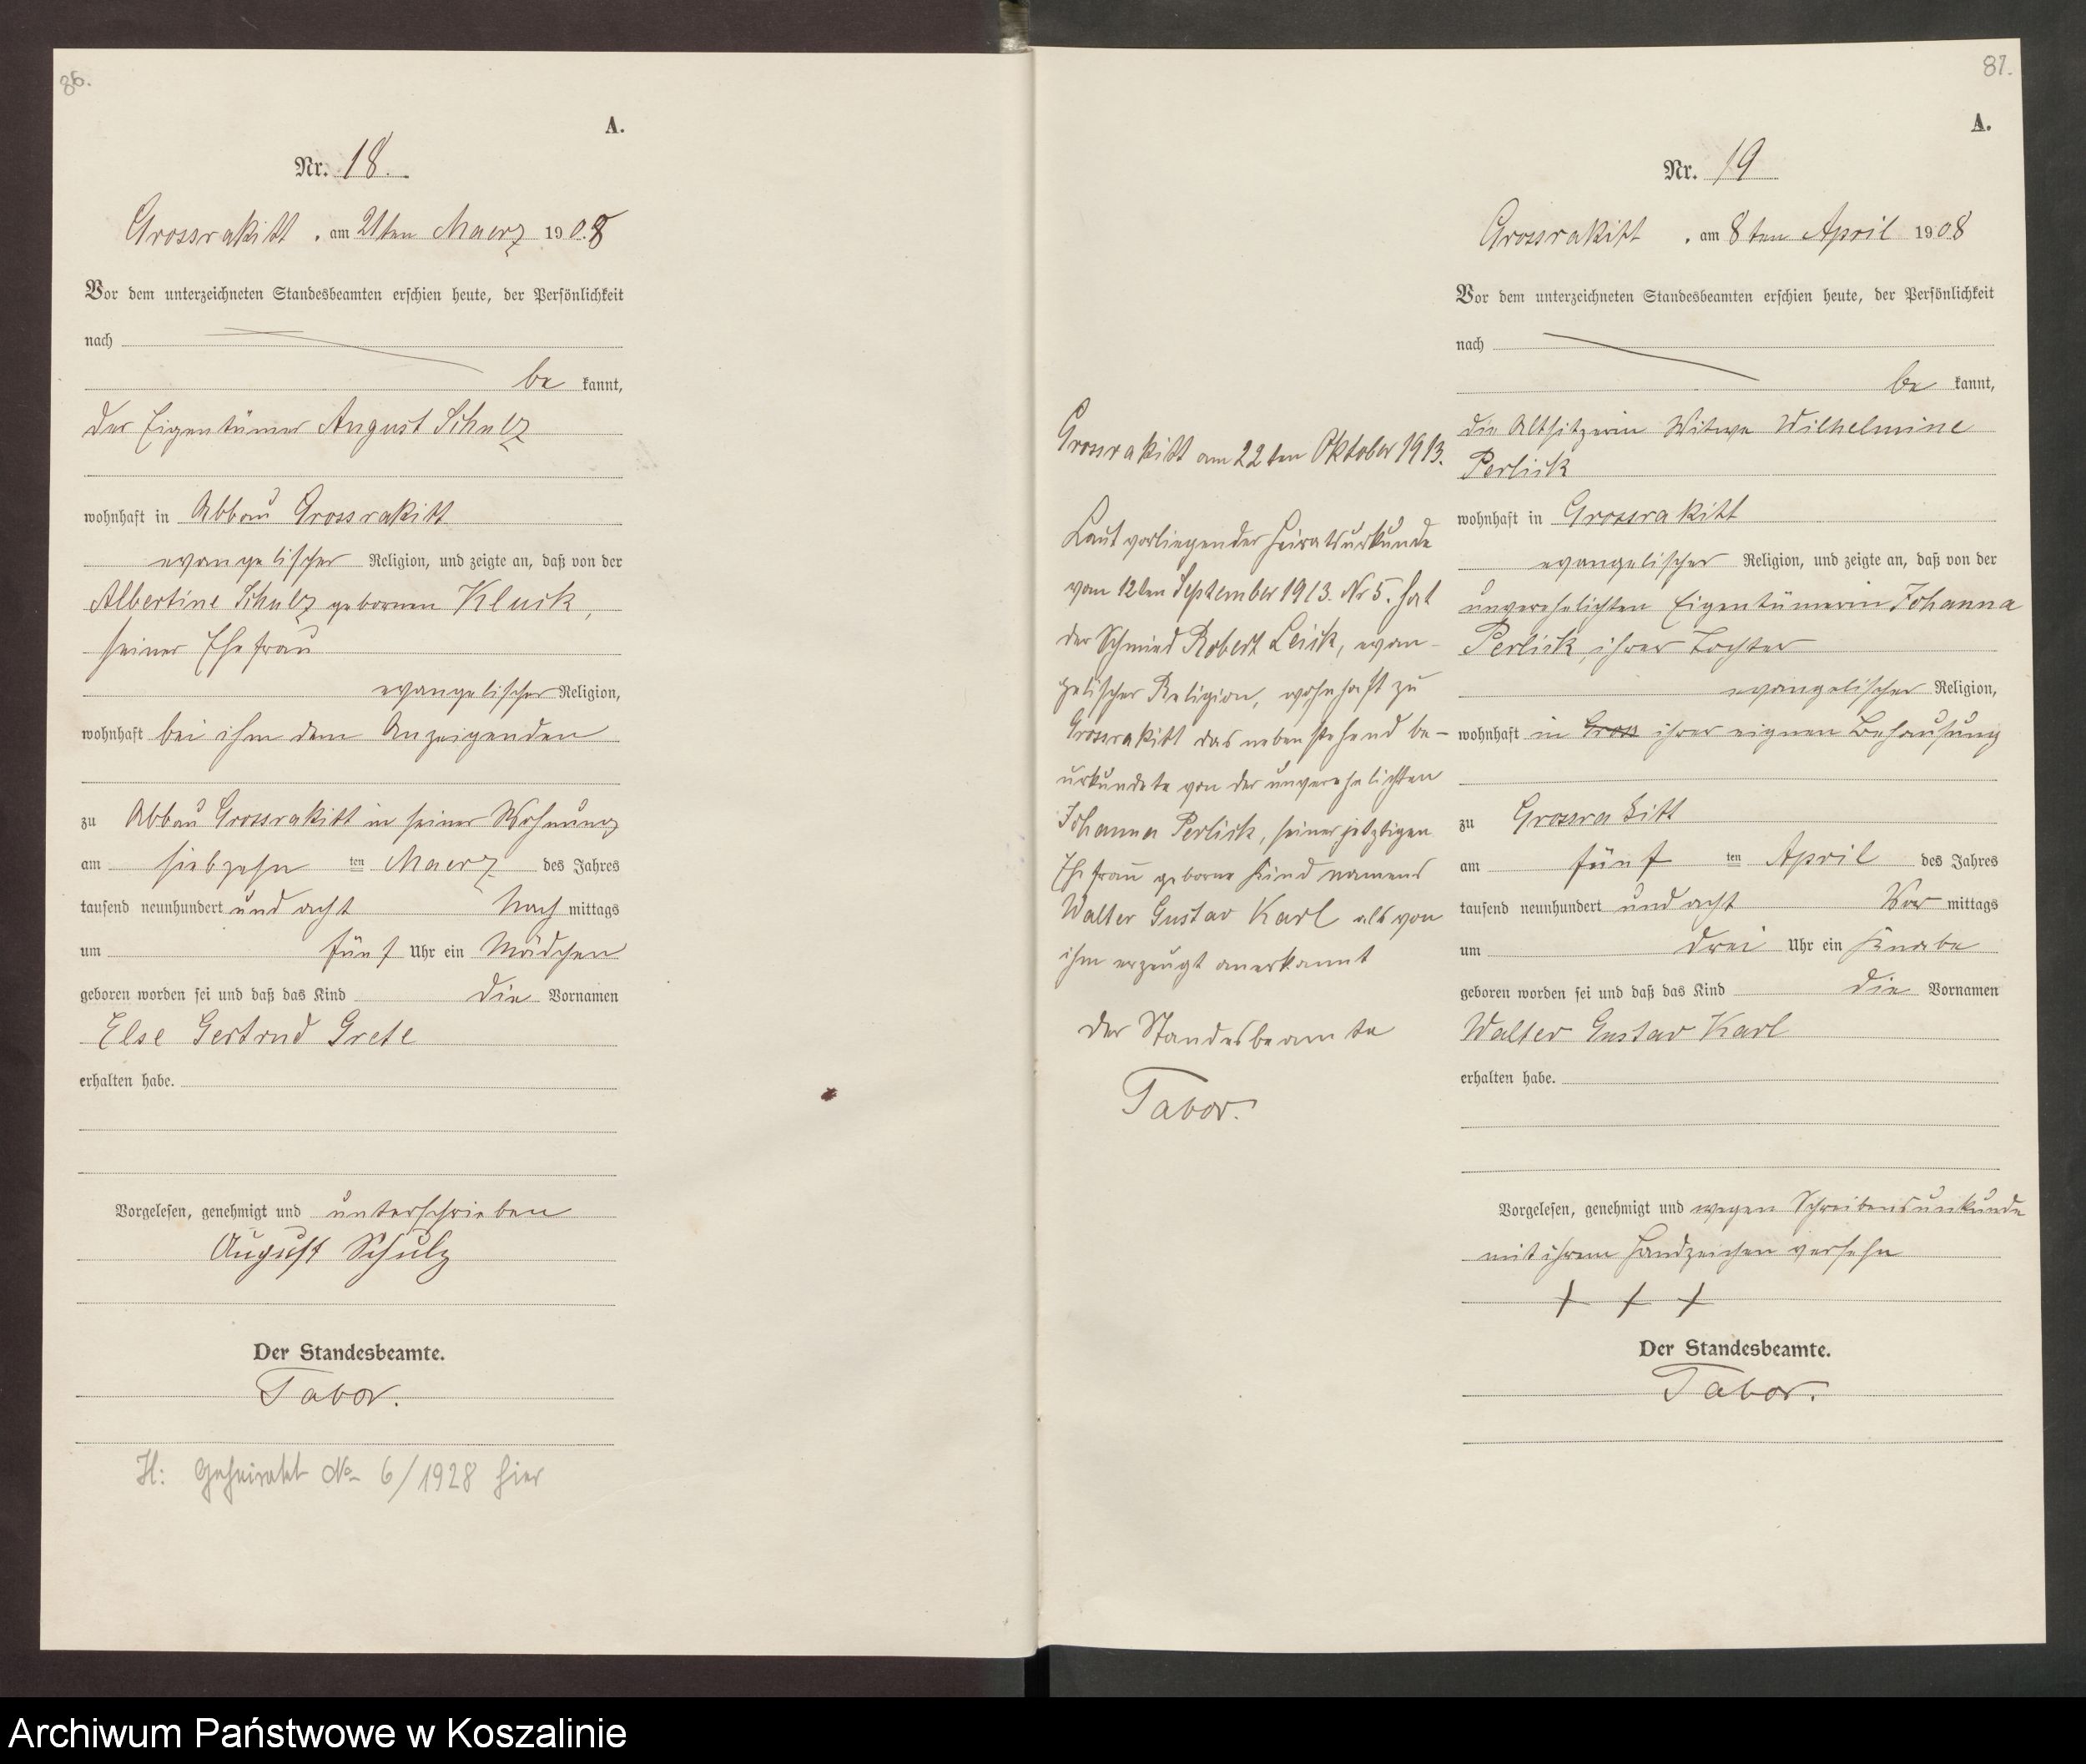 86.
A.
Nr. 18.
Grossrakitt, am 21ten Maerz 1908
Vor dem unterzeichneten Standesbeamten erschien heute, der Persönlichkeit
nach
be kannt,
der Eigentümer August Schulz
wohnhaft in Abbau Grossrakitt
evangelischer Religion, und zeigte an, daß von der
Albertine Schulz gebornen Kluck,
seiner Ehefrau
evangelischer Religion,
wohnhaft bei ihm dem Anzeigenden
zu Abbau Grossrakitt in seiner Wohnung
am siebzehn ten Maerz des Jahres
tausend neunhundert und acht Nach mittags
um fünf Uhr ein Mädchen
geboren worden sei und daß das Kind die Vornamen
Else Gertrud Grete
erhalten habe.
Vorgelesen, genehmigt und unterschrieben
August Schulz
Der Standesbeamte.
Tabor.
H: Geheiratet No 6/1928 hier
87.
A.
Nr. 19
Grossrakitt, am 8ten April 1908
Vor dem unterzeichneten Standesbeamten erschien heute, der Persönlichkeit
nach
be kannt,
die Altsitzerin Witwe Wilhelmine
Perlick
wohnhaft in Grossrakitt
evangelischer Religion, und zeigte an, daß von der
unverehelichten Eigentümerin Johanna
Perlick, ihrer Tochter
evangelischer Religion,
wohnhaft in Gross ihrer eignen Behausung
zu Grossrakitt
am fünf ten April des Jahres
tausend neunhundert und acht Vor mittags
um drei Uhr ein Knabe
geboren worden sei und daß das Kind die Vornamen
Walter Gustav Karl
erhalten habe.
Vorgelesen, genehmigt und wegen Schreibensunkunde
mit ihrem Handzeichen versehn
+ + +
Der Standesbeamte.
Tabor.
Grossrakitt am 22ten Oktober 1913.
Laut vorliegender Heiratsurkunde
vom 12ten September 1913. Nr 5. hat
der Schmied Robert Leick, evan-
gelischer Religion, wohnhaft zu
Grossrakitt das nebenstehend be-
urkundete von der unverehelichten
Johanna Perlick, seiner jetztigen
Ehefrau geborne Kind namens
Walter Gustav Karl als von
ihm erzeugt anerkannt
Der Standesbeamte
Tabor.
Archiwum Państwowe w Koszalinie